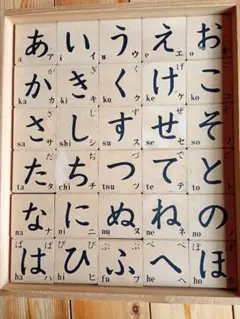 あ a ア い i イ う u ウ え e エ お o オ
か が ka カ き ぎ ki キ く ぐ ku ク け げ ke ケ こ ご ko コ
さ ざ sa サ し じ shi シ す ず su ス せ ぜ se セ そ ぞ so ソ
た だ ta タ ち ぢ chi チ つ づ tsu ツ て で te テ と ど to ト
な na ナ に ni ニ ぬ nu ヌ ね ne ネ の no ノ
は ば ぱ ha ハ ひ び ぴ hi ヒ ふ ぶ ぷ fu フ へ べ ぺ he ヘ ほ ぼ ぽ ho ホ